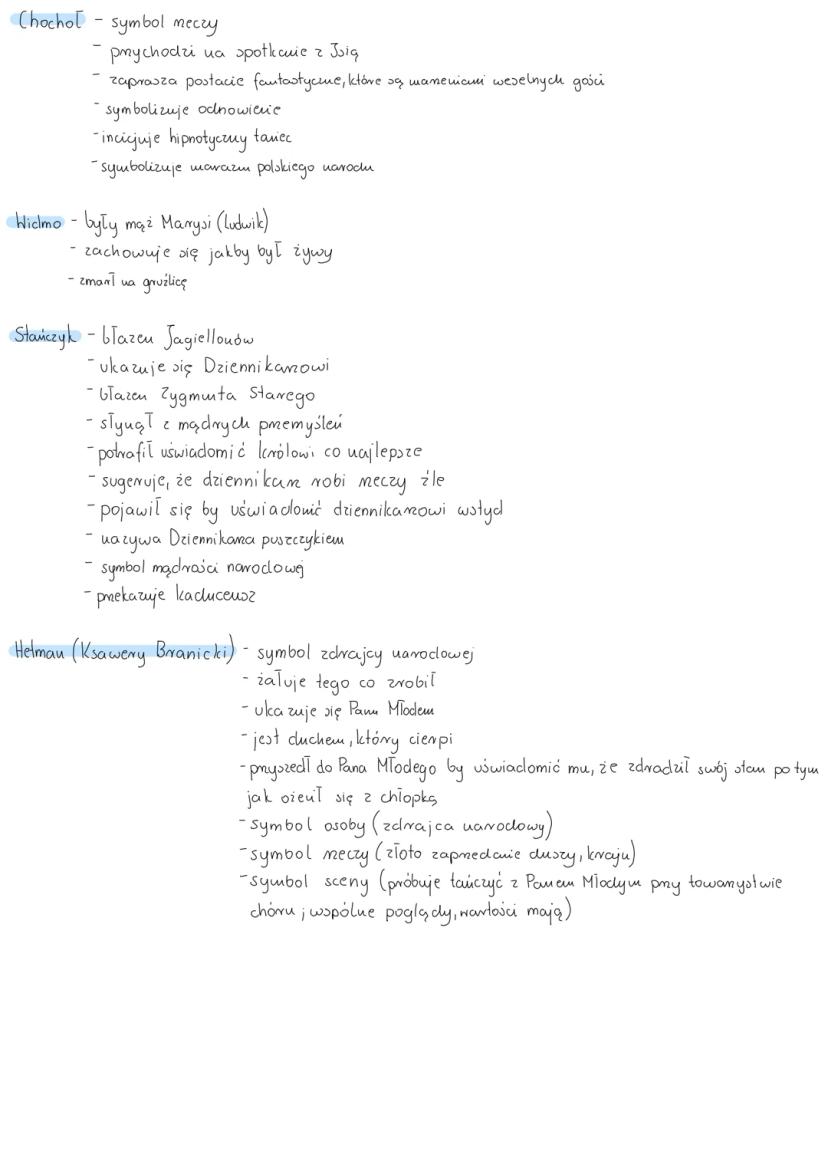 Chochoł - symbol rzeczy
- przychodzi na spotkanie z Isią
- zaprasza postacie fantastyczne, które są marzeniami weselnych gości
- symbolizuje odnowienie
- inicjuje hipnotyczny taniec
- symbolizuje marazm polskiego narodu
Widmo - były mąż Marysi (Ludwik)
- zachowuje się jakby był żywy
- zmarł na gruźlicę
Stańczyk - błazen Jagiellonów
- ukazuje się Dziennikarzowi
- błazen Zygmunta Starego
- słynął z mądrych przemyśleń
- potrafił uświadomić królowi co najlepsze
- sugeruje, że dziennikarz robi rzeczy źle
- pojawił się by uświadomić dziennikarzowi wstyd
- nazywa Dziennikarza puszczykiem
- symbol mądrości narodowej
- przekazuje kaduceusz
Hetman (Ksawery Branicki) - symbol zdrajcy narodowej
- żałuje tego co zrobił
- ukazuje się Panu Młodem
- jest duchem, który cierpi
- przyszedł do Pana Młodego by uświadomić mu, że zdradził swój stan po tym
jak ożenił się z chłopką
- symbol osoby (zdrajca narodowy)
- symbol rzeczy (złoto zaprzedanie duszy, kraju)
- symbol sceny (próbuje tańczyć z Panem Młodym przy towarzystwie
chóru; wspólne poglądy, wartości mają)